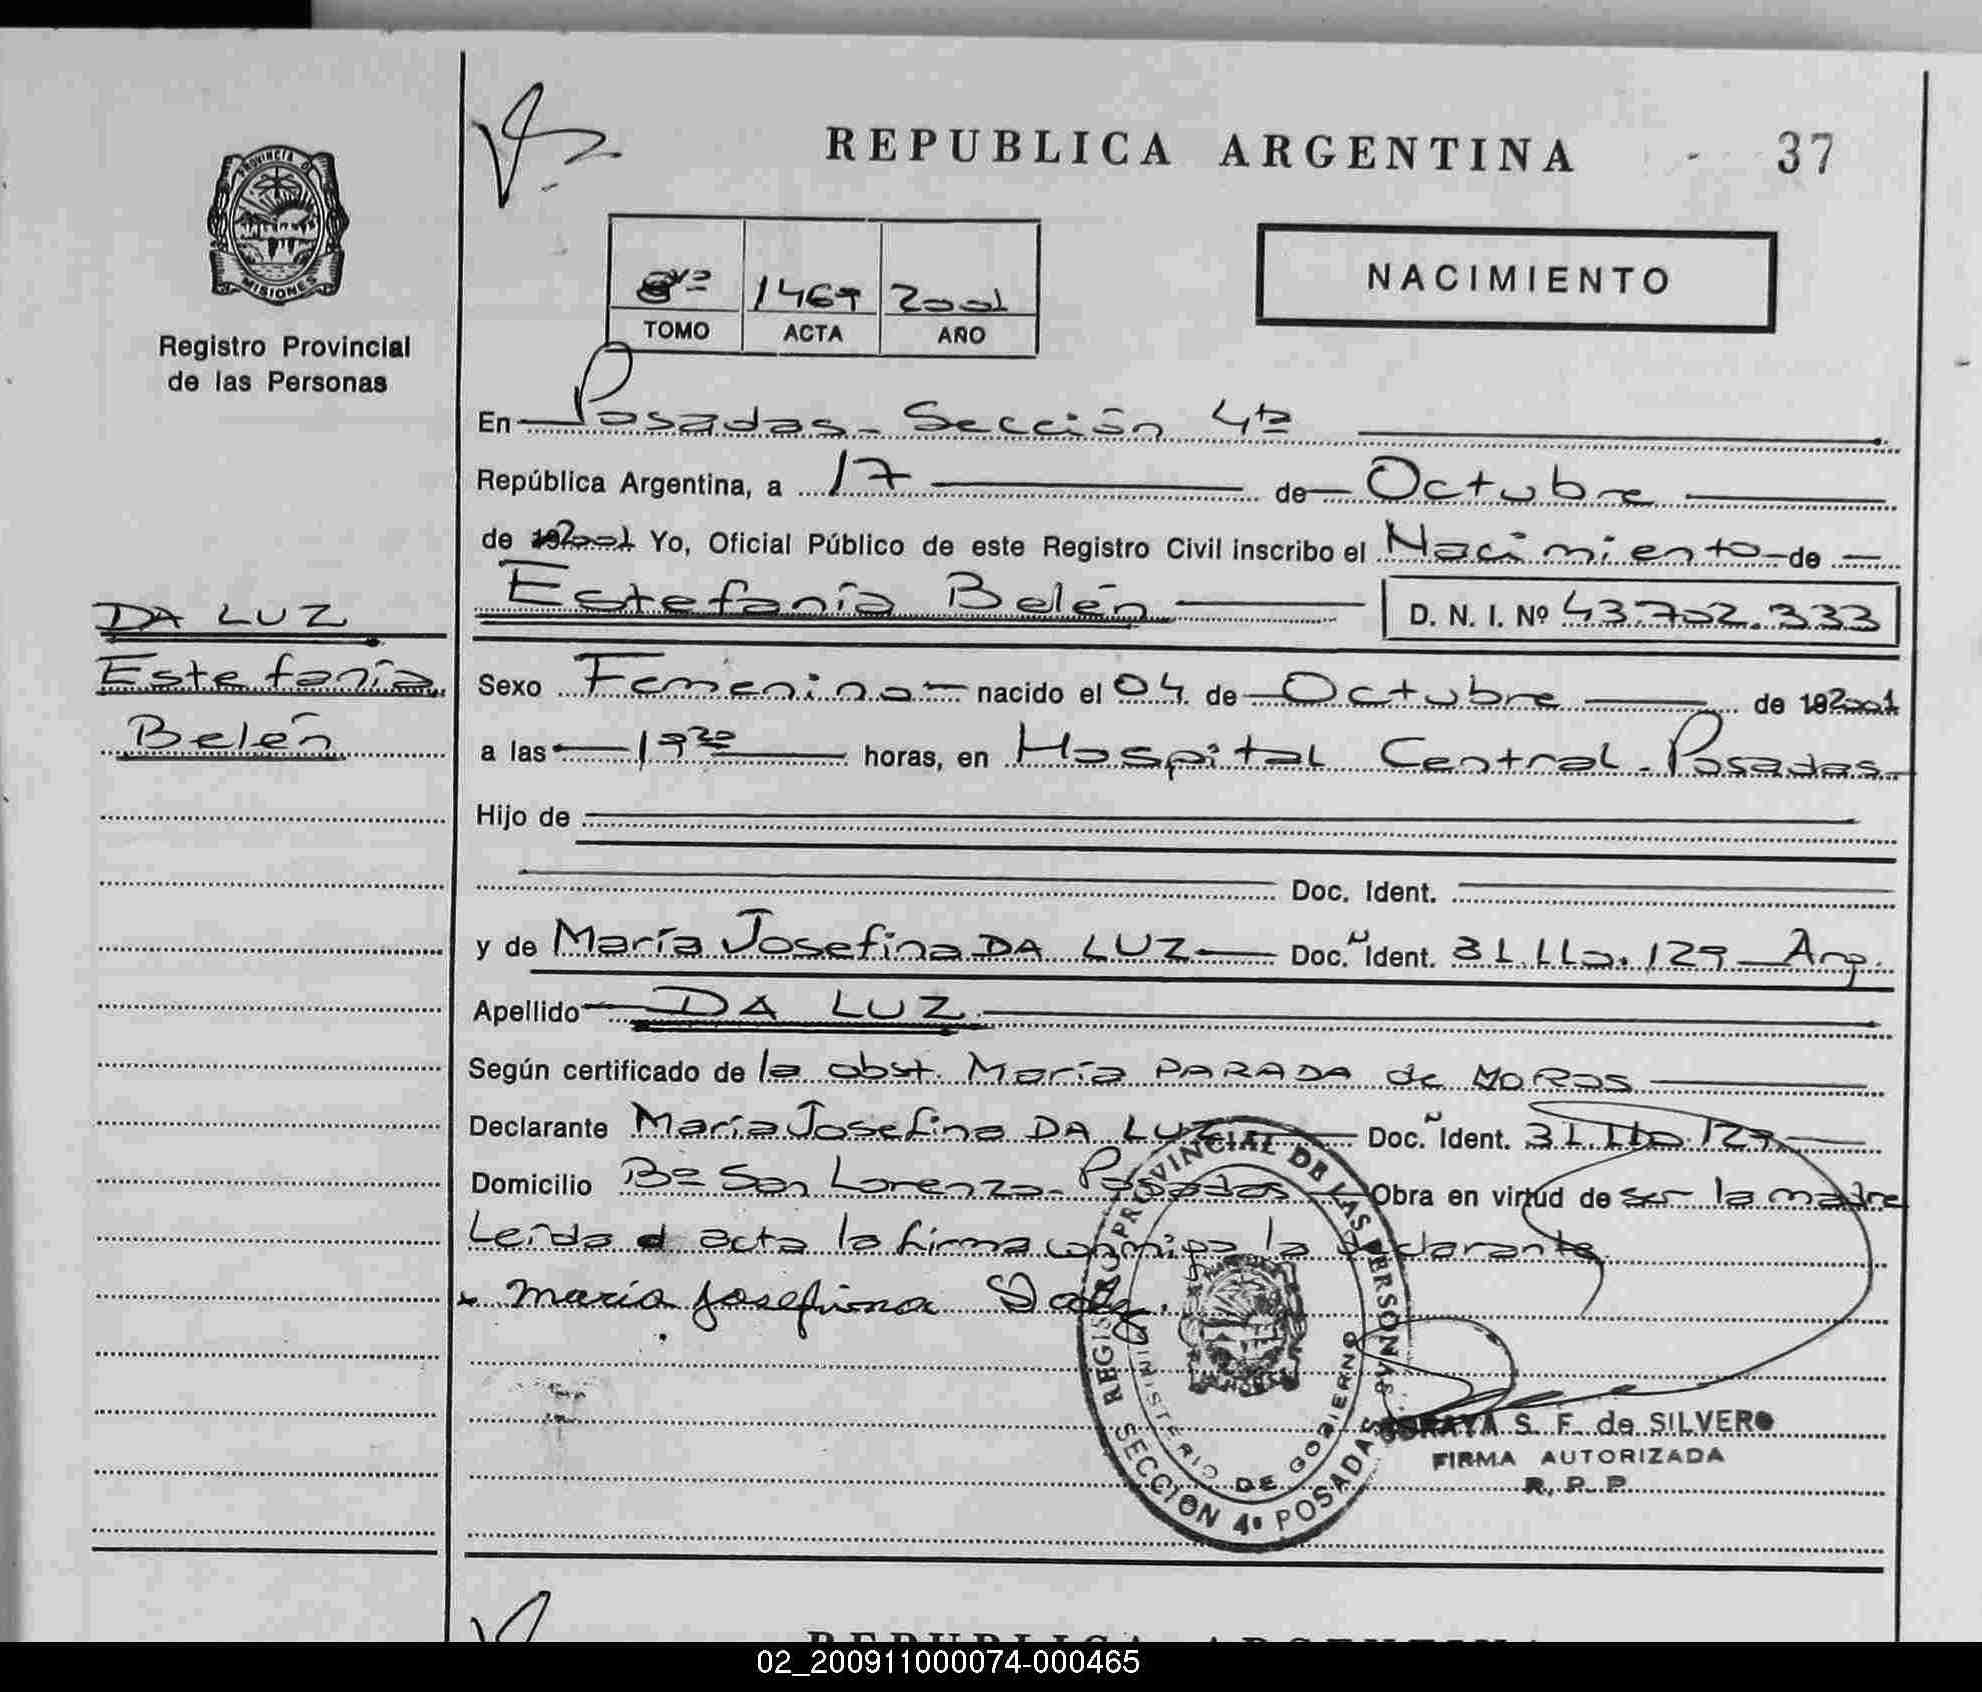 REPUBLICA ARGENTINA 37
PROVINCIA DE MISIONES
Registro Provincial
de las Personas
8vo 1469 2001
TOMO ACTA AÑO
NACIMIENTO
En Posadas - Sección 4ta
República Argentina, a 17 de Octubre
de 2001 Yo, Oficial Público de este Registro Civil inscribo el Nacimiento de
Estefanía Belén D. N. I. Nº 43.702.333
DA LUZ
Estefanía
Belén
Sexo Femenino nacido el 04 de Octubre de 2001
a las 19:30 horas, en Hospital Central - Posadas
Hijo de
Doc. Ident.
y de María Josefina DA LUZ Doc. Ident. 31.110.129 Arg.
Apellido DA LUZ
Según certificado de la obst. María PARADA de
Declarante María Josefina DA LUZ Doc. Ident. 31.110.129
Domicilio Bº San Lorenzo - Posadas Obra en virtud de ser la madre
Leída el acta la firma conmigo la declarante
María Josefina
REGISTRO PROVINCIAL DE LAS PERSONAS
MINISTERIO DE GOBIERNO
SECCION 4º POSADAS
S. F. de SILVERO
FIRMA AUTORIZADA
R. P. P.
REPUBLICA ARGENTINA
02_200911000074-000465